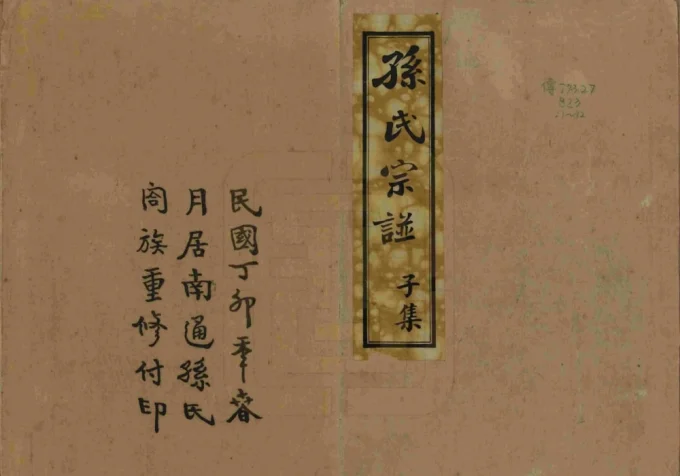 孫氏宗譜 子集
民國丁卯季春
月居南通孫氏
閤族重修付印
823